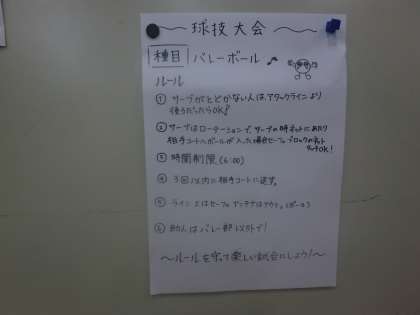 ～球技大会～
種目 バレーボール♪
ルール
① サーブがとどかない人は、アタックラインより
後ろだったらOK!
② サーブはローテーションで、サーブの時ネットにあたり
相手コートへボールが入った場合セーフ。ブロックのネット
タッチOK!
③ 時間制限(6:00)
④ 3回以内に相手コートに返す。
⑤ ライン上はセーフ
⑥ 助人はバレー部以外で!
～ルールを守って楽しい試合にしよう!～